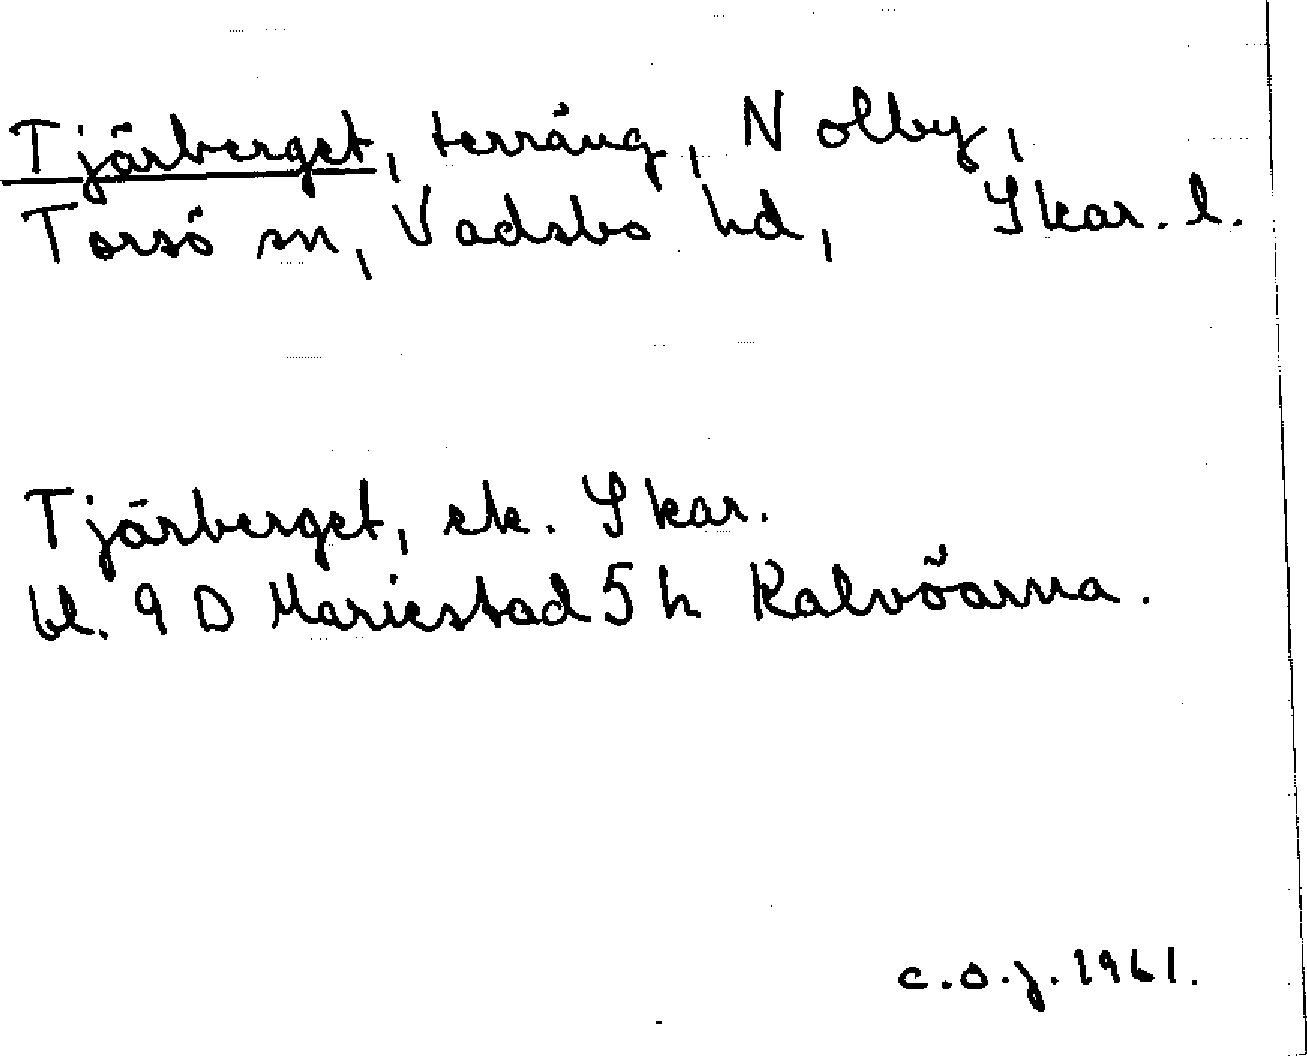 Tjärberget, terräng, Nolby,
Torsö sn, Vadsbo hd, Skar. l.
Tjärberget, ek. Skar.
bl. 9 D Mariestad 5 h Kalvöarna.
c.o.j. 1961.